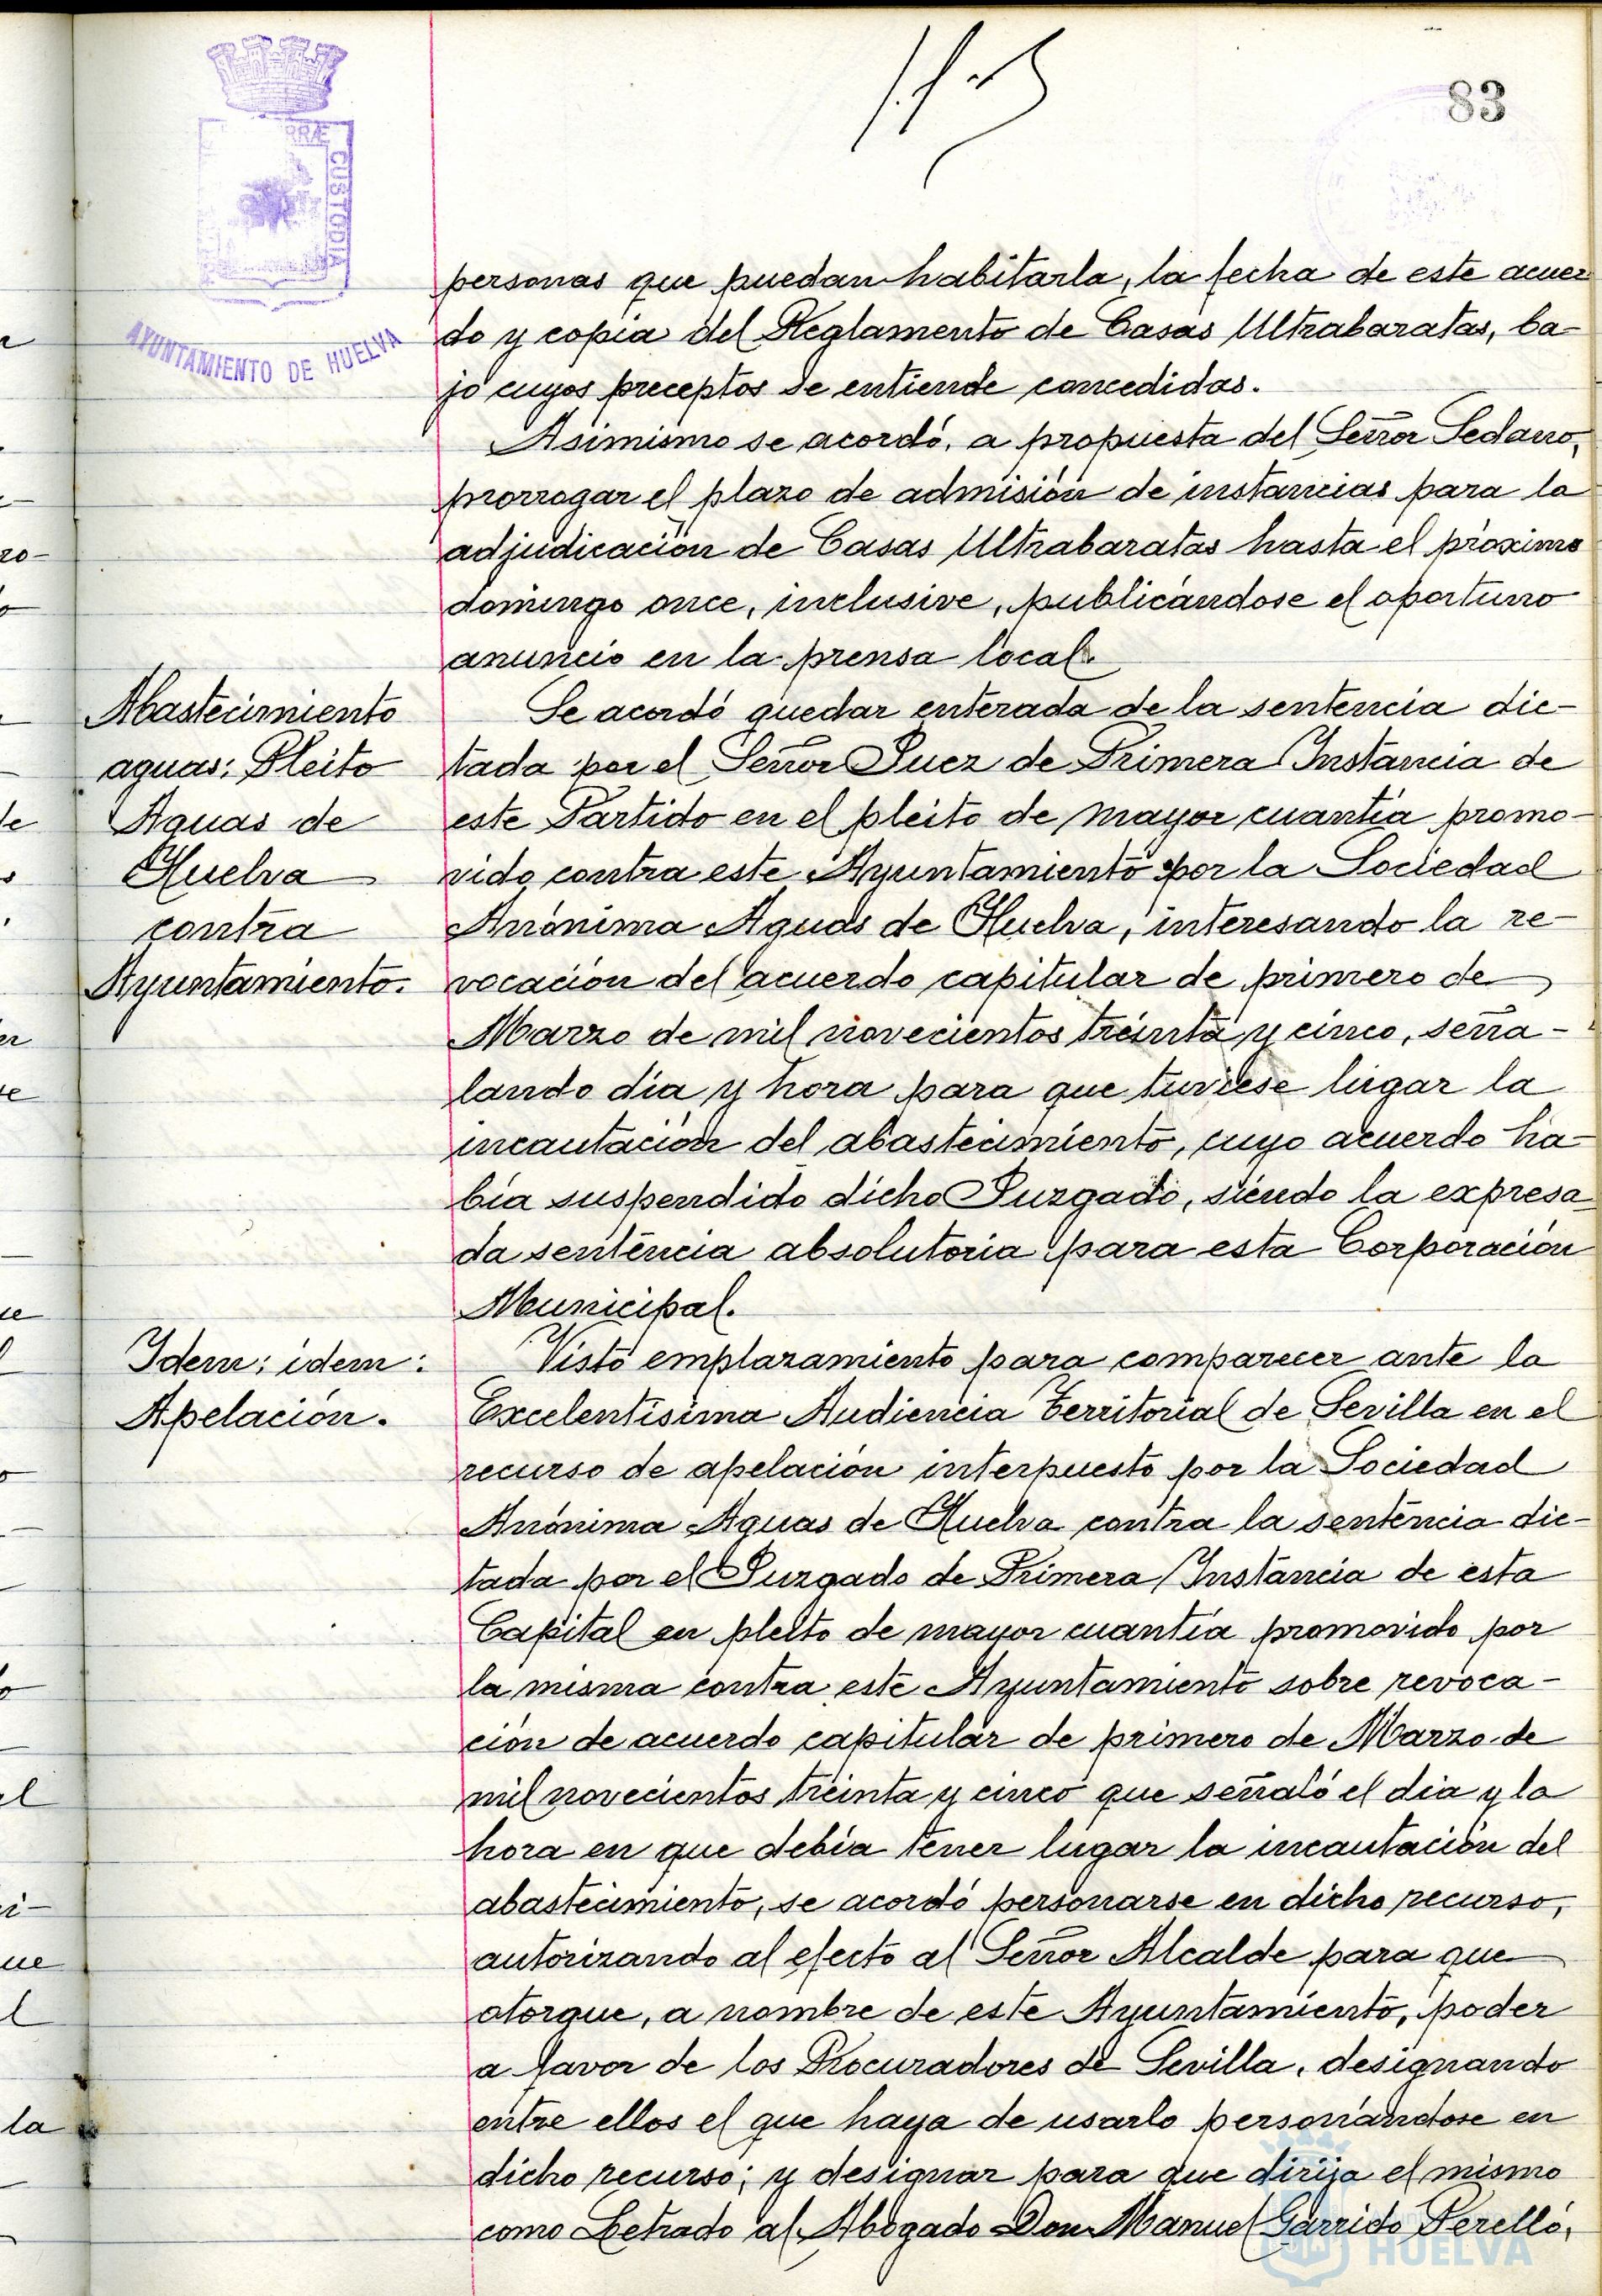 83
RRÆ CUSTODIA
AYUNTAMIENTO DE HUELVA
personas que puedan habitarla, la fecha de este acuer
do y copia del Reglamento de Casas Ultrabaratas, ba-
jo cuyos preceptos se entiende concedidas.
Asimismo se acordó, a propuesta del Señor Sedano,
prorrogar el plazo de admisión de instancias para la
adjudicación de Casas Ultrabaratas hasta el próximo
domingo once, inclusive, publicándose el oportuno
anuncio en la prensa local.
Abastecimiento
aguas: Pleito
Aguas de
Huelva
contra
Ayuntamiento.
Se acordó quedar enterada de la sentencia dic-
tada por el Señor Juez de Primera Instancia de
este Partido en el pleito de mayor cuantía promo-
vido contra este Ayuntamiento por la Sociedad
Anónima Aguas de Huelva, interesando la re-
vocación del acuerdo capitular de primero de
Marzo de mil novecientos treinta y cinco, seña-
lando día y hora para que tuviese lugar la
incautación del abastecimiento, cuyo acuerdo ha-
bía suspendido dicho Juzgado, siendo la expresa-
da sentencia absolutoria para esta Corporación
Municipal.
Idem: idem:
Apelación.
Visto emplazamiento para comparecer ante la
Excelentísima Audiencia Territorial de Sevilla en el
recurso de apelación interpuesto por la Sociedad
Anónima Aguas de Huelva contra la sentencia dic-
tada por el Juzgado de Primera Instancia de esta
Capital en pleito de mayor cuantía promovido por
la misma contra este Ayuntamiento sobre revoca-
ción de acuerdo capitular de primero de Marzo de
mil novecientos treinta y cinco que señaló el dia y la
hora en que debía tener lugar la incautación del
abastecimiento, se acordó personarse en dicho recurso,
autorizando al efecto al Señor Alcalde para que
otorgue, a nombre de este Ayuntamiento, poder
a favor de los Procuradores de Sevilla, designando
entre ellos el que haya de usarlo personándose en
dicho recurso; y designar para que dirija el mismo
como Letrado al Abogado Don Manuel Garrido Perelló,
HUELVA